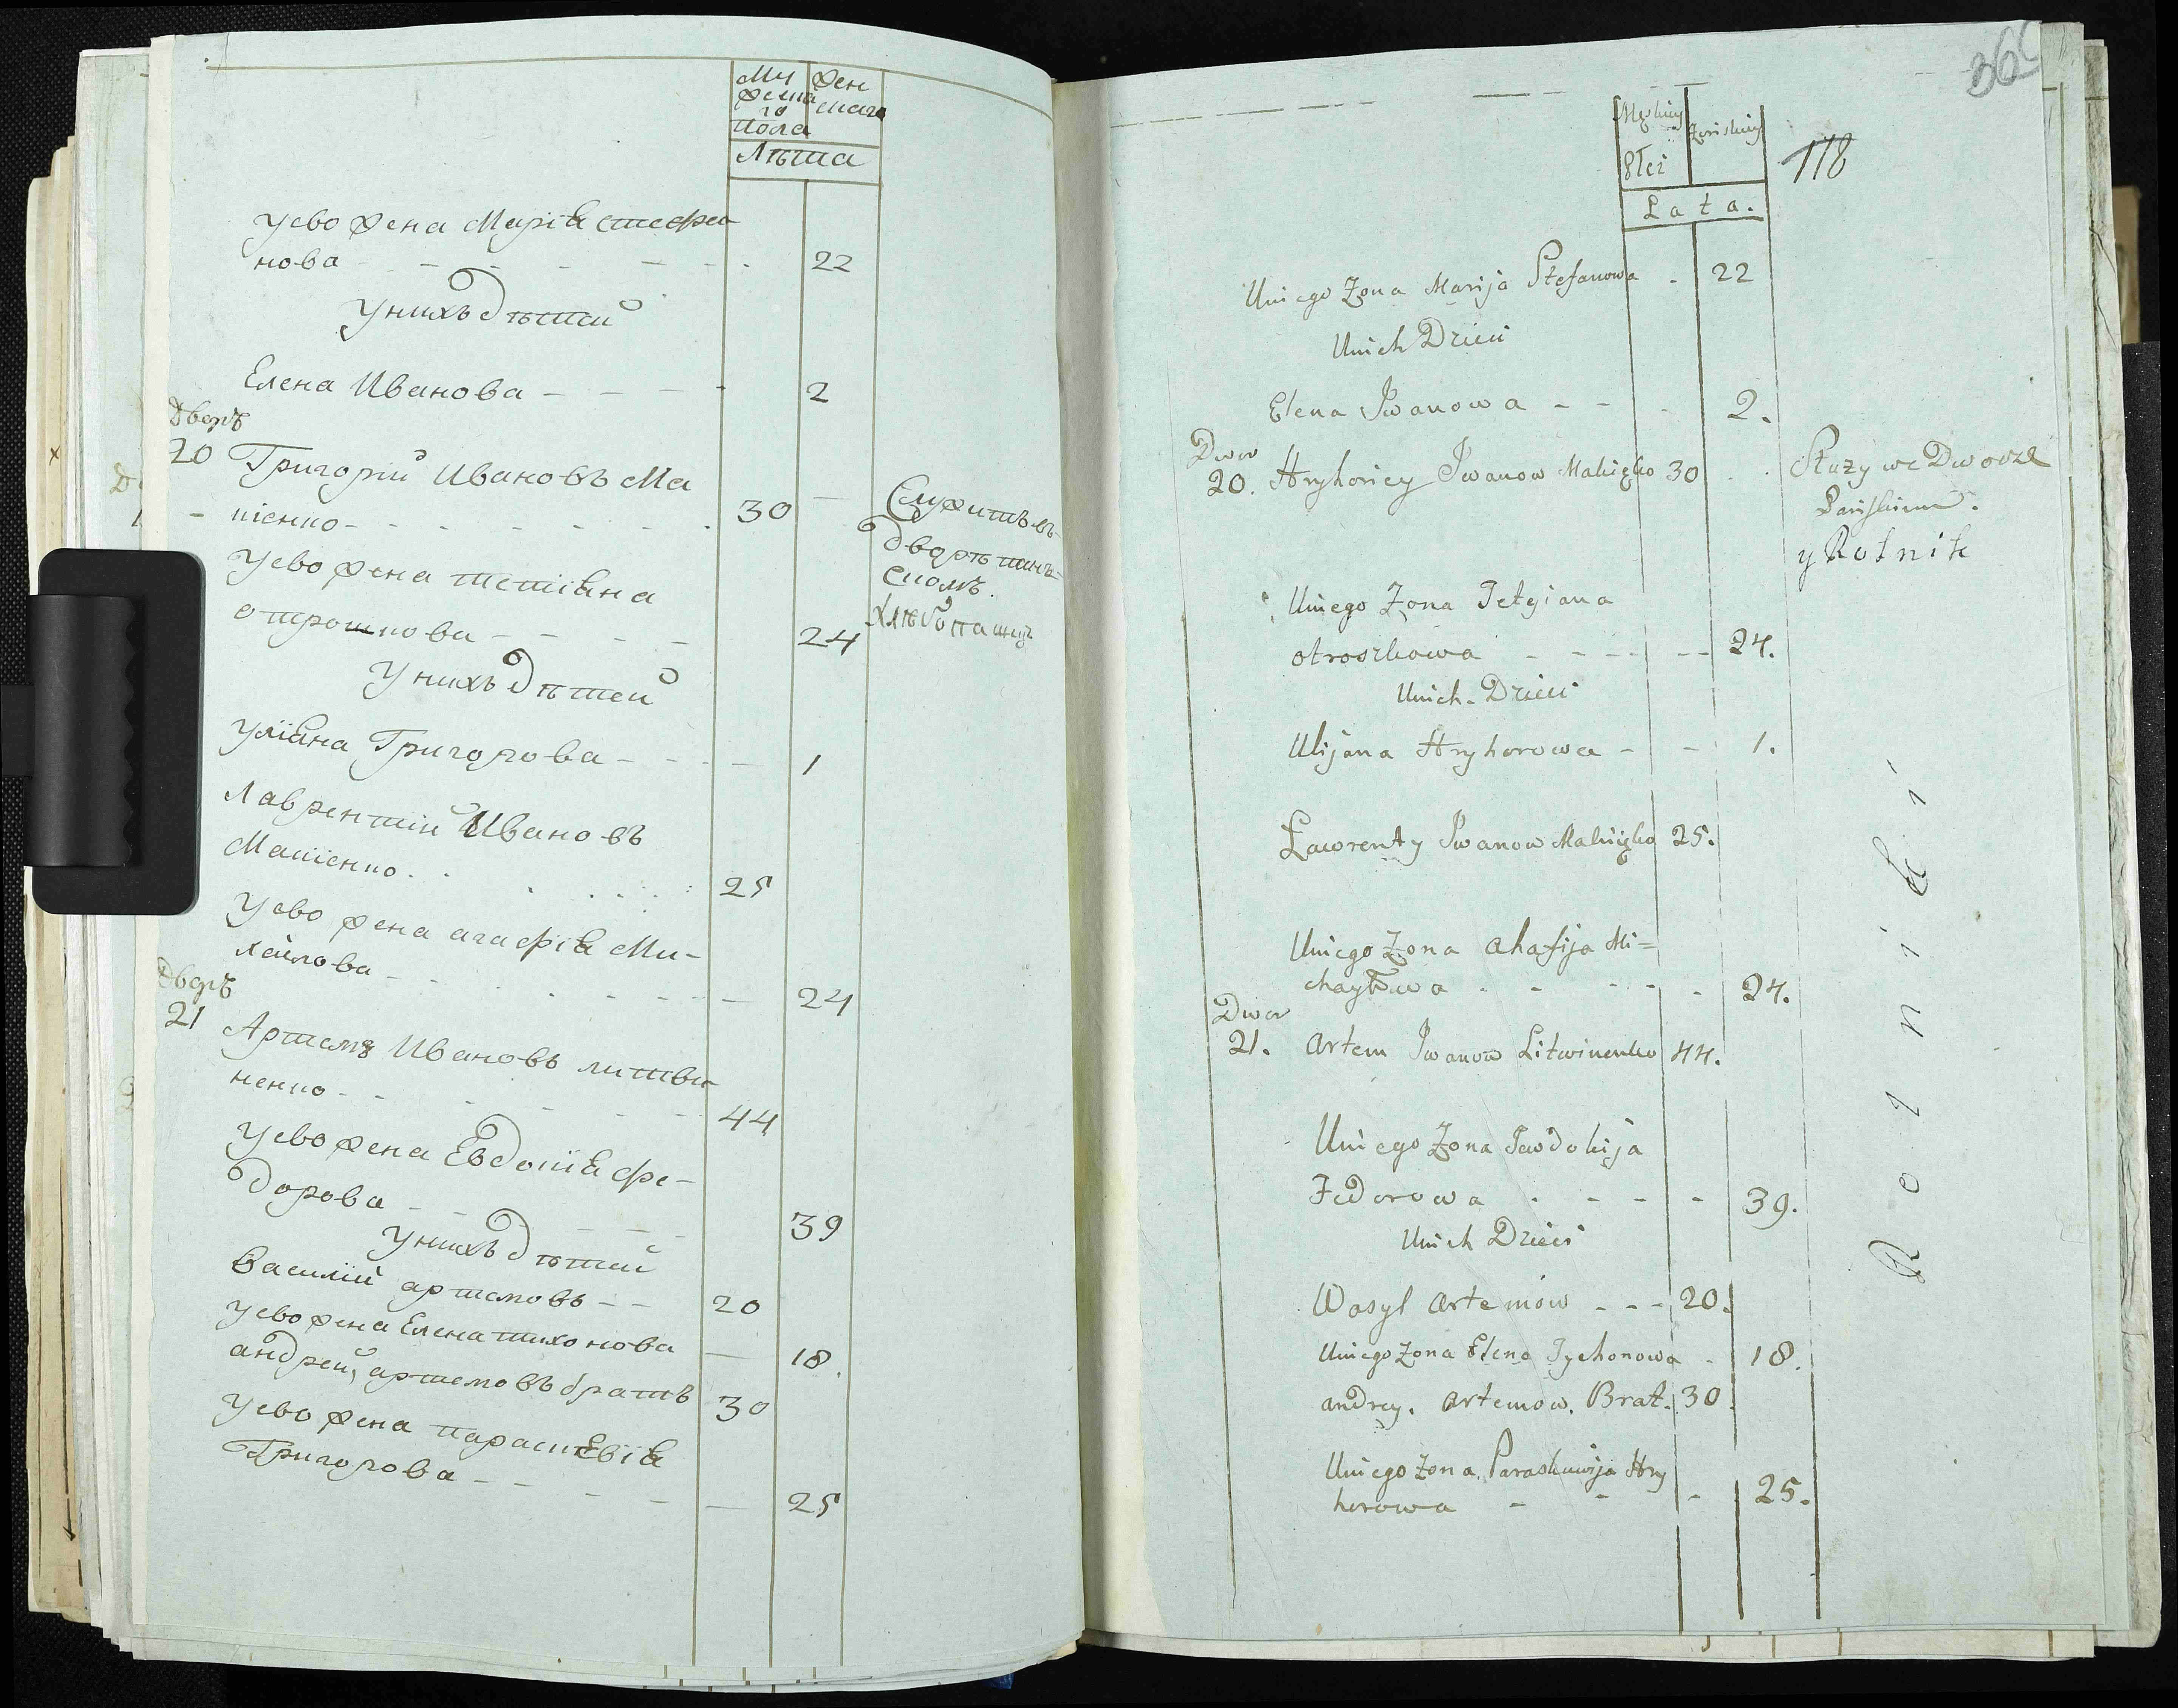 Му
жеска
го
Жен
скаго
пола
Лѣта
у ево жена Маріа Стефа
нова - - - - - 22
у нихъ дѣтей
Елена Иванова - - - - 2
Дворъ
20 Григорій Ивановъ Ма
кіенко - - - - - - 30
Служитъ въ
дворѣ пан
ском.
Хлѣбопашец
у ево жена Тетіана
Отрошкова - - - - 24
у нихъ дѣтей
Уліана Григорова - - - - 1
Лаврентій Ивановъ
Макіенко - - - 25
у ево жена Агафіа Ми-
хайлова - - - - - 24
Дворъ
21 Артемъ Ивановъ Литви
ненко - - - - - 44
у ево жена Евдокіа Фе-
дорова - - - - 39
у нихъ дѣтей
Василій Артемовъ - - 20
у ево жена Елена Тихонова — 18.
Андрей, Артемовъ братъ 30
у ево жена Параскевіа
Григорова - - - - 25
366
118
Męskiey
Żeńskiey
Płci
Lata.
U niego Żona Marija Stefanowa - 22
U nich Dzieci
Elena Iwanowa - - - 2.
Dwor
20. Hryhoriey Iwanow Makiejko 30
Służy we Dworze
Pańskiem.
y Rolnik
U niego Żona Tetyiana
otroszkowa - - - - - 24.
U nich Dzieci
Ulijana Hryhorowa - - 1.
Ławrenty Iwanow Makiejko 25.
U niego Żona ahafija Mi=
chayłowa - - - - 24.
Dwor
21. artem Iwanow Litwinenko 44.
U niego Żona Jewdokija
Fedorowa - - - - 39.
U nich Dzieci
Wasyl artemow - - - 20.
U niego Żona Elena Tychonowa - 18.
andrey. artemow. Brat. 30.
U niego Żona Paraskiewija Hry
horowa - - - 25.
Rolniki